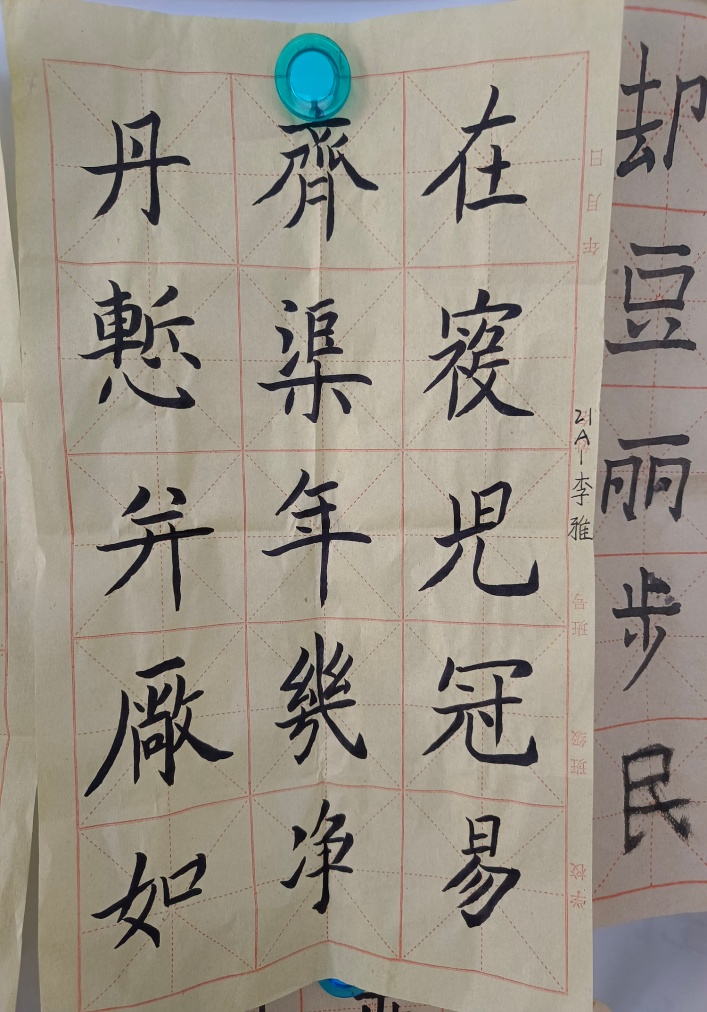 却豆丽步民
年 月 日
班号
班级
学校
21A1李雅
在児冠易
齊渠年幾净
丹慙弁厰如